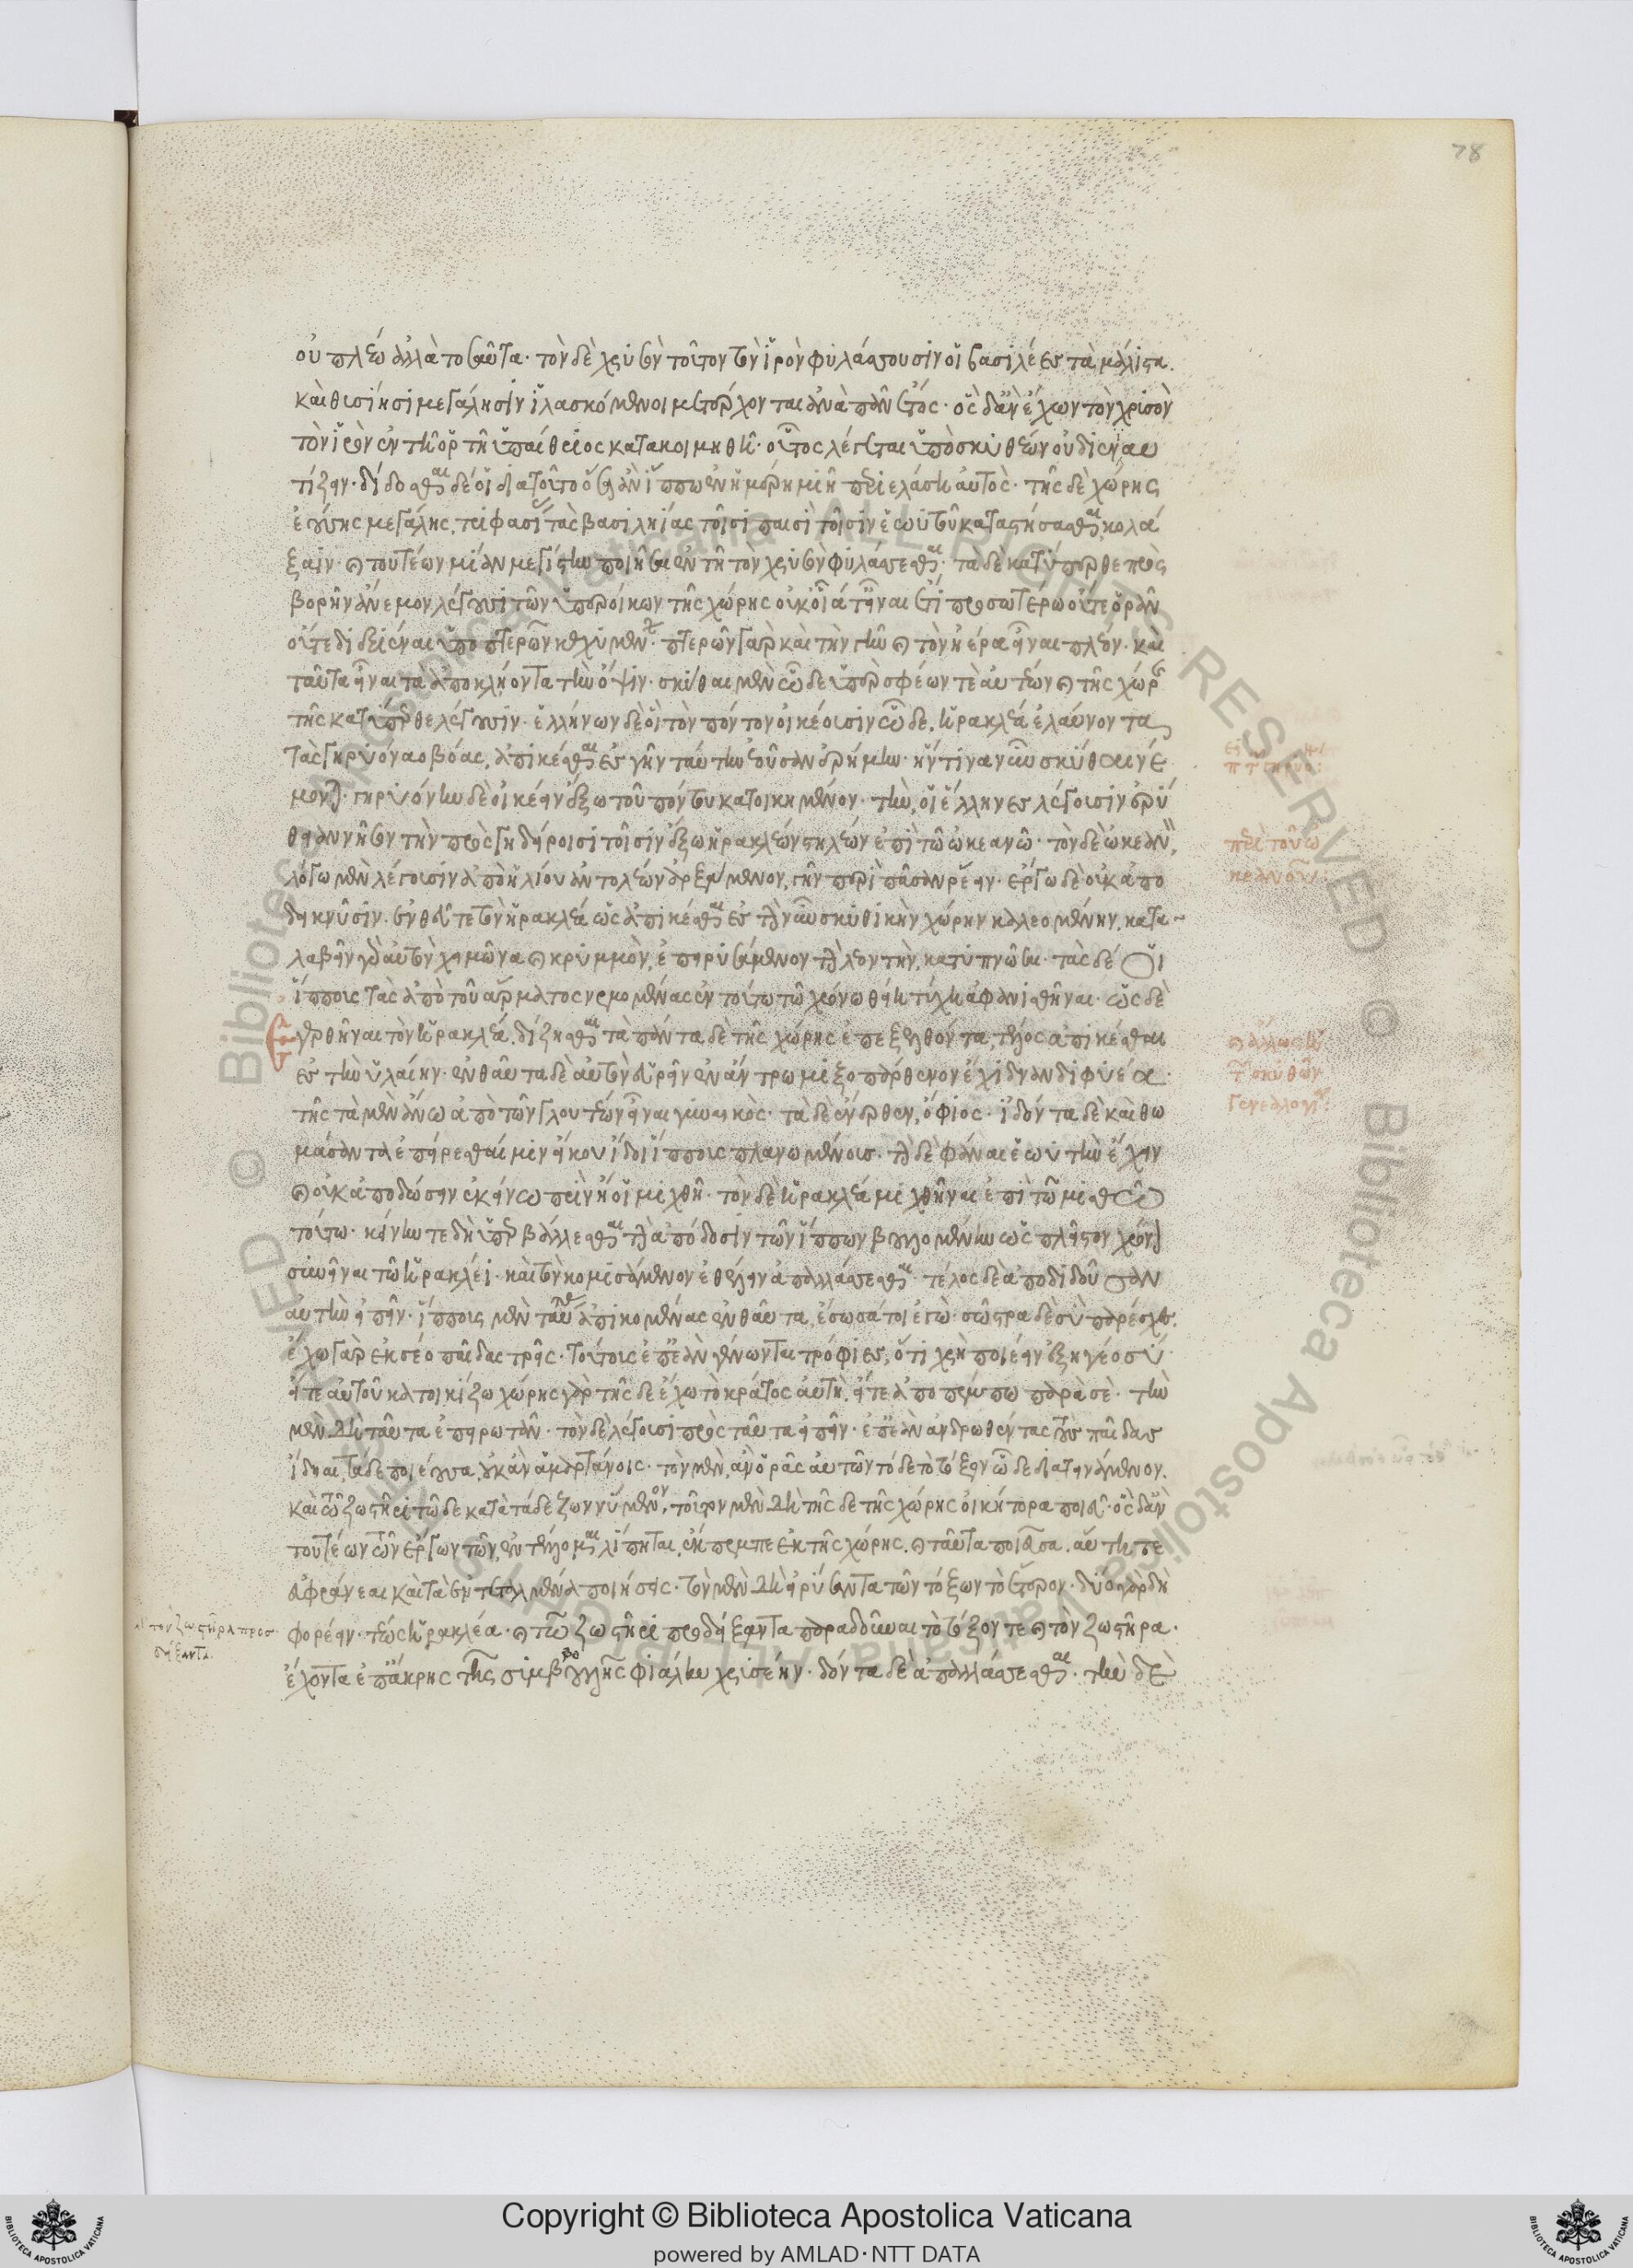 78
οὐ πλέω ἀλλὰ τοσαῦτα· τὸν δὲ χρυσὸν τοῦτον τὸν ἱρὸν φυλάσσουσιν οἱ βασιλέες τὰ μάλιστα.
καὶ θυσίησι μεγάλησιν ἱλασκόμενοι μετέρχονται ἀνὰ πᾶν ἔτος· ὃς δ' ἂν ἔχων τὸν χρυσὸν
τὸν ἱρὸν ἐν τῆ ὁρτῆ ὑπαίθριος κατακοιμηθῆ· οὗτος λέγεται ὑπὸ σκυθέων οὐ διενιαυ
τίζειν· δίδοσθαι δέ οἱ διατοῦτο ὅσα ἂν ἵππω ἐν ἡμέρη μιῆ περιελάση αὐτός· τῆς δὲ χώρης
ἐούσης μεγάλης, τριφασίας τὰς βασιληίας τοῖσι παισὶ τοῖσιν ἑωυτοῦ καταστήσασθαι κολά
ξαιν· καὶ τουτέων μίαν μεγίστην ποιῆσαι ἐν τῆ τὸν χρυσὸν φυλάσσεσθαι· τὰ δὲ κατύπερθε πρὸς
βορῆν ἄνεμον λέγουσι τῶν ὑπεροίκων τῆς χώρης οὐκ οἷά τε εἶναι ἔτι προσωτέρω οὔτε ὁρᾶν
οὔτε διεξιέναι ὑπὸ πτερῶν κεχυμένων· πτερῶν γὰρ καὶ τὴν γῆν καὶ τὸν ἠέρα εἶναι πλέον· καὶ
ταῦτα εἶναι τὰ ἀποκλήοντα τὴν ὄψιν· σκύθαι μὲν ὧδε ὑπὲρ σφέων τε αὐτῶν καὶ τῆς χώρης
τῆς κατύπερθε λέγουσιν· ἑλλήνων δὲ οἱ τὸν πόντον οἰκέουσιν ὧδε, ἡρακλέα ἐλαύνοντα
τὰς γηρυόναο βόας, ἀπικέσθαι ἐς γῆν ταύτην ἐοῦσαν ἐρήμην· ἥντινα νῦν σκύθαι νέ
μονται· γηρυόνην δὲ οἰκέειν ἔξω τοῦ πόντου κατοικημένον· τὴν, οἱ ἕλληνες λέγουσιν ἐρύ
θειαν νῆσον τὴν πρὸς γηδείροισι τοῖσιν ἔξω ἡρακλέων στηλέων ἐπὶ τῶ ὠκεανῶ· τὸν δὲ ὠκεανὸν
λόγω μὲν λέγουσιν ἀπὸ ἡλίου ἀντολέων ἀρξάμενον, γῆν περὶ πᾶσαν ῥέειν· ἔργω δὲ οὐκ ἀπο
δεικνῦσιν· ἐνθεῦτε τὸν ἡρακλέα ὡς ἀπικέσθαι ἐς τὴν νῦν σκυθικὴν χώρην καλεομένην, κατα
λαβεῖν γὰρ αὐτὸν χειμῶνα καὶ κρυμμὸν, ἐπειρυσάμενον τὴν λεοντῆν, κατυπνῶσαι· τὰς δέ οἱ
ἵππους τὰς ἀπὸ τοῦ ἅρματος νεμομένας ἐν τούτω τῶ χρόνω θείη τύχη ἀφανισθῆναι· ὡς δὲ
ἐγερθῆναι τὸν ἡρακλέα, δίζησθαι τὰ πάντα δὲ τῆς χώρης ἐπεξελθόντα, τέλος ἀπικέσθαι
ἐς τὴν ὑλαίην· ἐνθαῦτα δὲ αὐτὸν εὑρεῖν ἐν ἄντρω μιξοπάρθενον ἔχιδναν διφυέα·
τῆς τὰ μὲν ἄνω ἀπὸ τῶν γλουτέων εἶναι γυναικός· τὰ δὲ ἔνερθεν, ὄφιος· ἰδόντα δὲ καὶ θω
μάσαντα ἐπείρεσθαί μιν εἴ κου ἴδοι ἵππους πλανωμένους· τὴν δὲ φάναι ἑωυτὴν ἔχειν
καὶ οὐκ ἀποδώσειν ἐκείνω πρὶν ἤ οἱ μιχθῆ· τὸν δὲ ἡρακλέα μιχθῆναι ἐπὶ τῶ μισθῶ
τούτω· κείνην τε δὴ ὑπερβάλλεσθαι τὴν ἀπόδοσιν τῶν ἵππων βουλομένην ὡς πλεῖστον χρόνον
συνεῖναι τῶ ἡρακλέι· καὶ τὸν κομισάμενον ἐθέλειν ἀπαλλάσσεσθαι· τέλος δὲ ἀποδιδοῦσαν
αὐτὴν εἰπεῖν· ἵππους μὲν ταύτας ἀπικομένας ἐνθαῦτα, ἔσωσά τοι ἐγώ· σῶστρα δὲ σὺ παρέσχες.
ἔχω γὰρ ἐκ σέο παῖδας τρεῖς· τούτους ἐπεὰν γένωνται τρόφιες, ὅτι χρὴ ποιέειν ἐξηγέο σύ·
εἴτε αὐτοῦ κατοικίζω χώρης γὰρ τῆσδε ἔχω τὸ κράτος αὐτή, εἴτε ἀποπέμπω παρὰ σέ· τὴν
μὲν δὴ ταῦτα ἐπειρωτᾶν· τὸν δὲ λέγουσι πρὸς ταῦτα εἰπεῖν· ἐπεὰν ἀνδρωθέντας ἴδηαι τοὺς παῖδας
ἴδηαι, τάδε ποιεῦσα, οὐκ ἂν ἁμαρτάνοις· τὸν μὲν, ἂν ὁρᾶς αὐτῶν τόδε τὸ τόξον ὧδε διατεινάμενον.
καὶ τῶ ζωστῆρι τῶδε κατὰ τάδε ζωννύμενον, τοῦτον μὲν δὴ τῆσδε τῆς χώρης οἰκήτορα ποιεῦ· ὃς δ' ἂν
τουτέων τῶν ἔργων τῶν ἐντέλλομαι λίπηται, ἔκπεμπε ἐκ τῆς χώρης. καὶ ταῦτα ποιεῦσα. αὐτή τε
εὐφρανέαι καὶ τὰ ἐντεταλμένα ποιήσεις· τὸν μὲν δὴ εἰρύσαντα τῶν τόξων τὸ ἕτερον· δύο γὰρ δὴ
φορέειν· τέως ἡρακλέα· καὶ τὸν ζωστῆρι προδείξαντα παραδοῦναι τὸ τόξον τε καὶ τὸν ζωστῆρα·
ἔχοντα ἐπ' ἄκρης τῆς συμβολῆς φιάλην χρυσέην· δόντα δὲ ἀπαλλάσσεσθαι· τὴν δὲ
περὶ τοῦ ὠ
κεανοῦ:
καὶ ἄλλως ἡ
τῶν σκυθῶν
γενεαλογία:
τὸν ζωστῆρα προσ
δείξαντα.
Copyright © Biblioteca Apostolica Vaticana
powered by AMLAD·NTT DATA